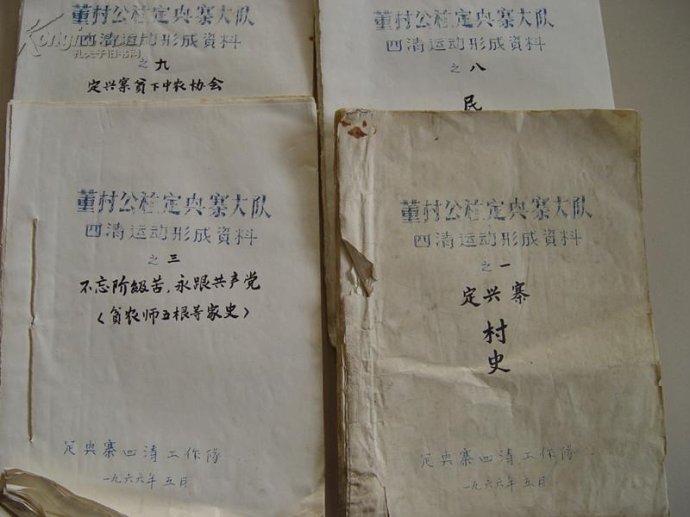 董村公社定兴寨大队
四清运动形成資料
之九
定兴寨貧下中农协会
董村公社定兴寨大队
四清运动形成資料
之八
民
董村公社定兴寨大队
四清运动形成資料
之三
不忘阶級苦，永跟共产党
（貧农师五根等家史）
定兴寨四清工作隊
一九六六年五月
董村公社定兴寨大队
四清运动形成資料
之一
定兴寨
村
史
定兴寨四清工作隊
一九六六年五月
孔夫子旧书网